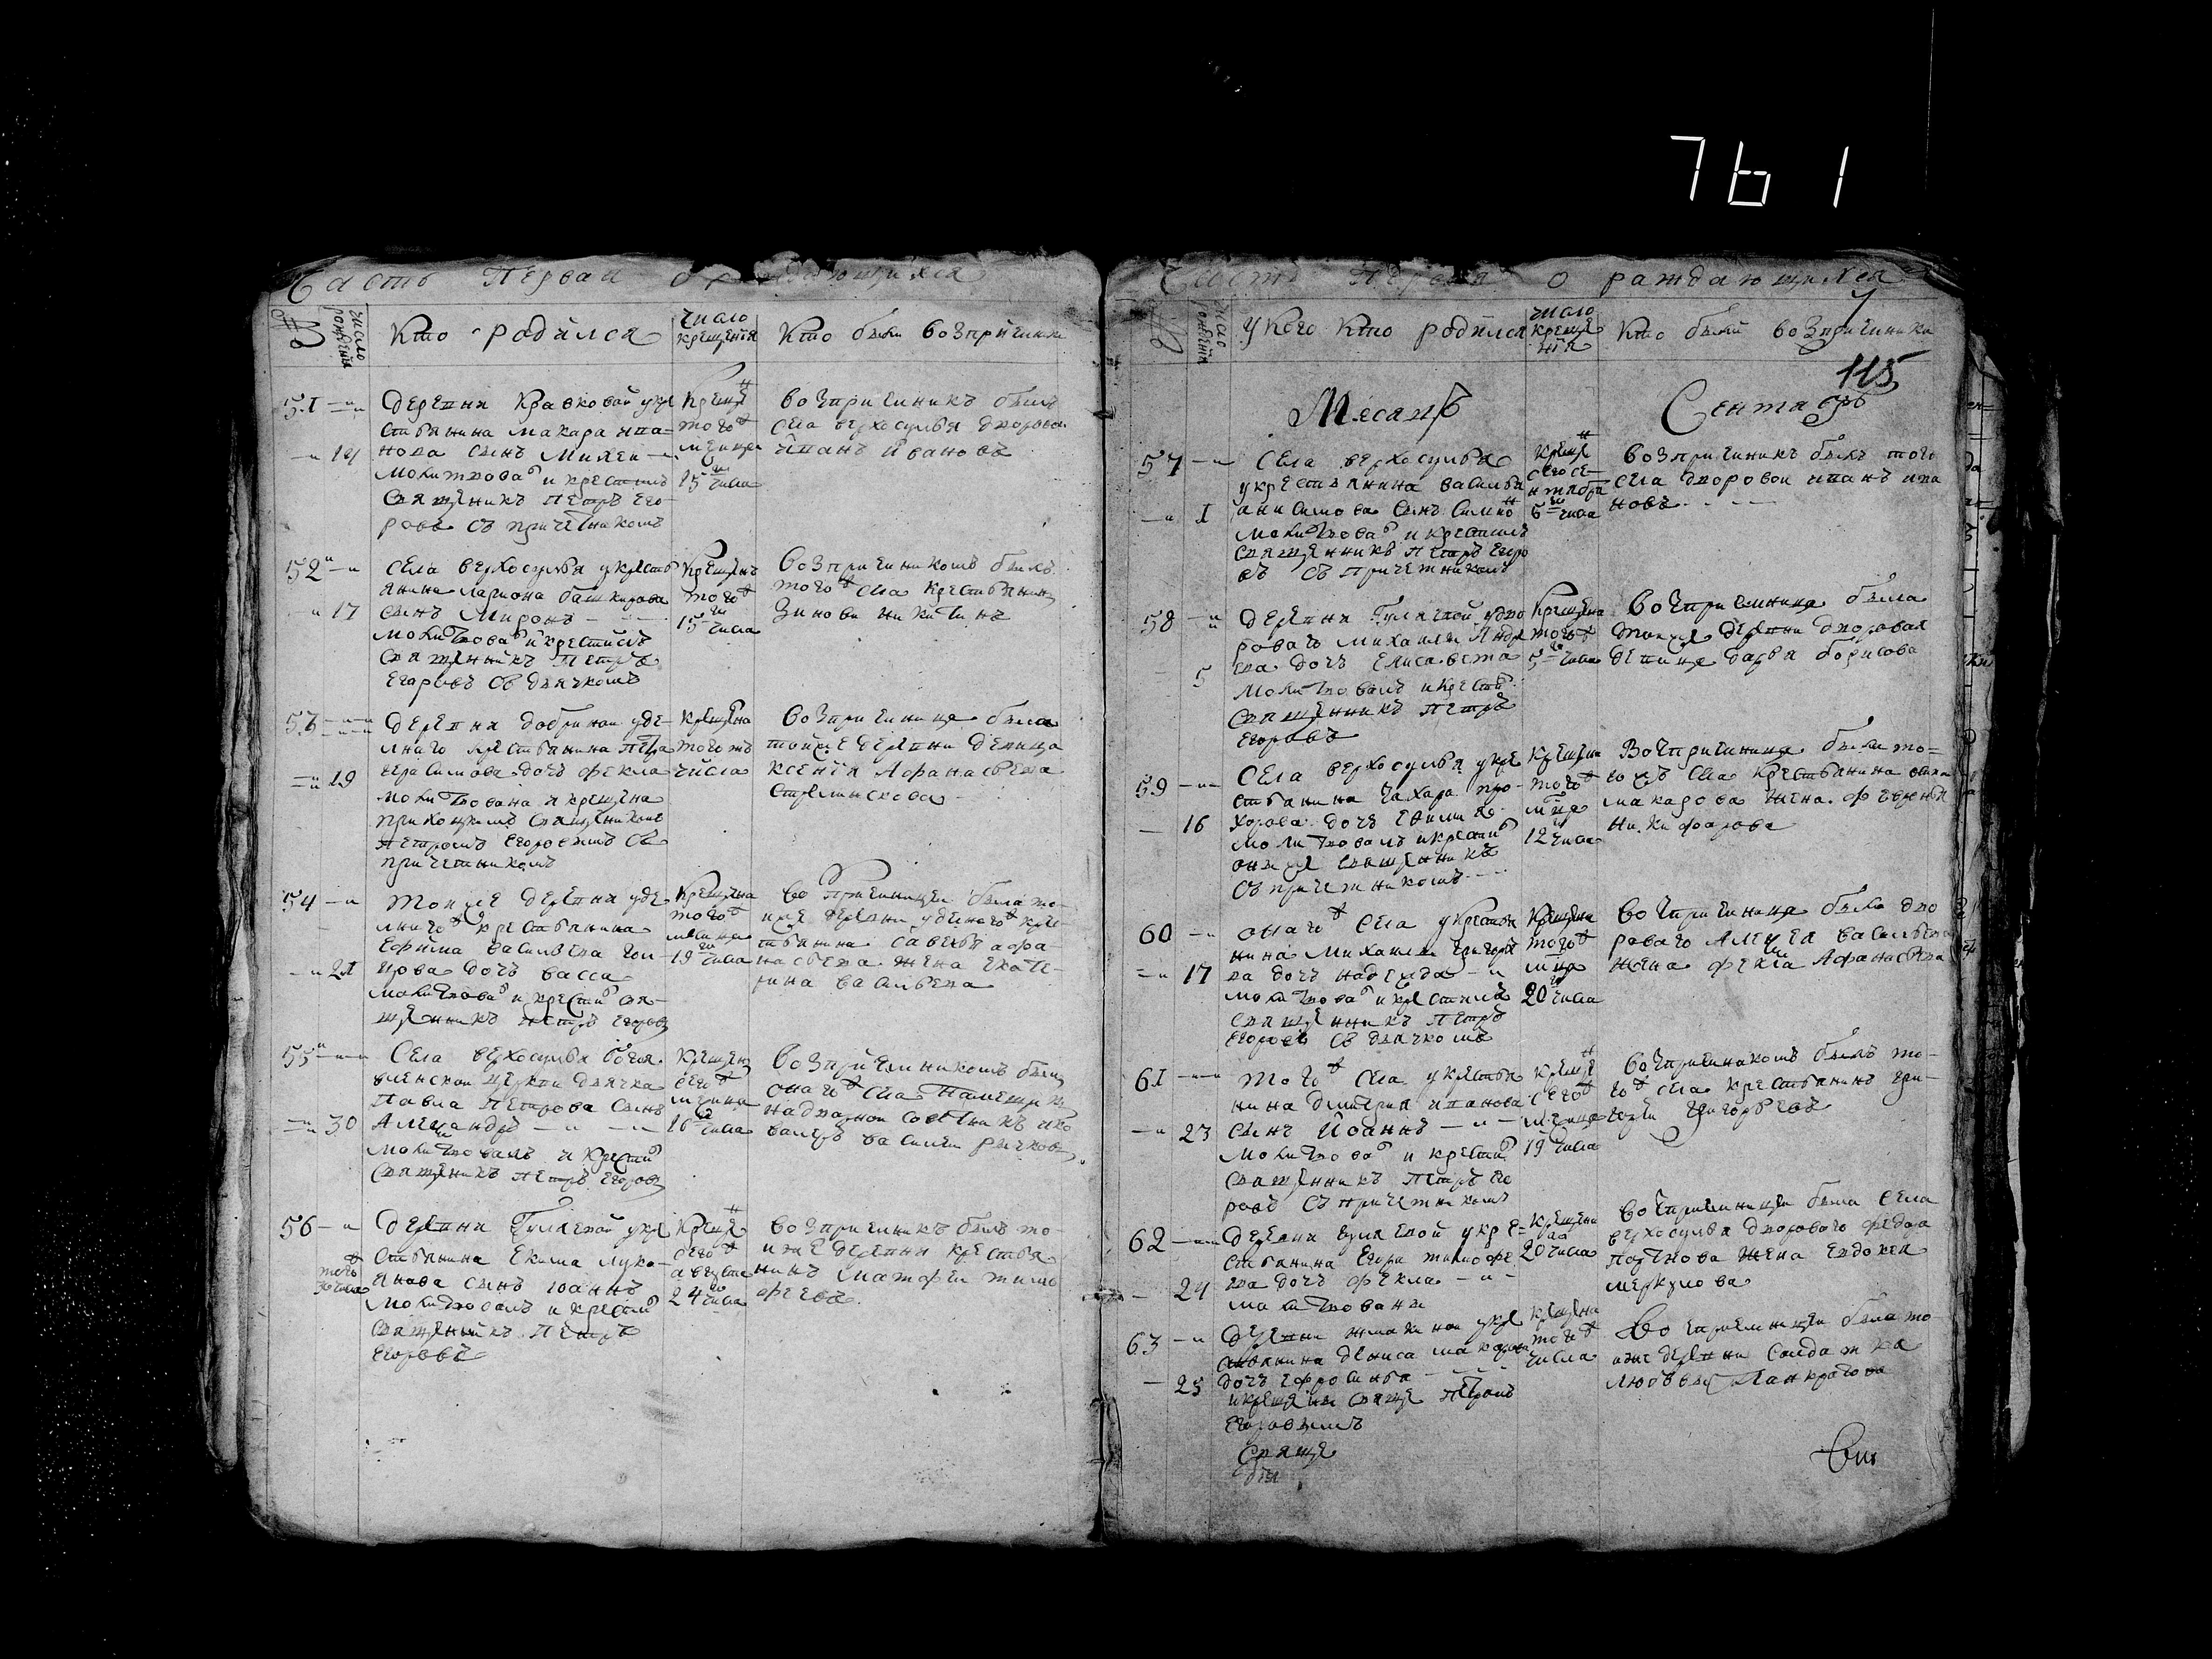 761
Часть Первая о раждающихся
число рождения
Кто родился
число крещения
Кто были возприемники
51
14
деревни Кравковой укре
стьянина макара ива=
нова сынъ Михеи
молитвова и крестилъ
священникъ Петръ его
ровъ съ причетникомъ
Креще
того
месяца
15 числа
возприемникъ былъ
села верхосулья дворовои
иванъ Ивановъ
52
17
села верхосулья укресть
янина лариона башкирова
сынъ Миронъ
молитвова и крестилъ
священникъ Петръ
Егоровъ съ дьячкомъ
Крещенъ
того
15 числа
возприемникомъ былъ
того села крестьянинъ
Зиновеи никитинъ
53
19
деревни добринои уде-
лнаго крестьянина Петра
герасимова дочь фекла
молитвована и крещена
приходскимъ священникомъ
Петромъ Егоровымъ съ
причетникомъ
крещена
того жъ
числа
возприемница была
тойже деревни девица
ксенїя Афанасьева
54
21
тоиже деревни уде
лнаго крестьянина
Ефима васильева
дочь васса
молитвова и крести свя-
щенникъ Петръ Егоровъ
Крещена
того
месяца
19 числа
во приемницеи была то-
иже деревни уделнаго кре-
стьянина савелья афа-
насьева жена екате-
рина васильева
55
30
Села верхосулья богоя-
вленскои церкви дьячка
Павла Петрова сынъ
Алеѯандръ
молитвовалъ и крести
священникъ Петръ Егоровъ
крещенъ
сего
месяца
16 числа
возприемникомъ былъ
онаго села Помещикъ
надворнои советникъ и ка
валеръ василеи рычковъ
56
того
30 числа
деревни Гуляевой укре
стьянина Екима луко-
янова сынъ иоаннъ
молитвовалъ и крести
священникъ Петръ
Егоровъ
Креще
сего
августа
24 числа
возприемникъ былъ то-
иже деревни крестья
нинъ матфеи тимо
феевъ
Часть Первая о раждающихся
число рождения
У кого кто родился
число крещения
Кто были возприемники
115
Месяцъ
Сентябрь
57
1
Села верхосулья
укрестьянина василья
анисимова сынъ
молитвова и крестилъ
священникъ Петръ Егоро
въ съ причетникомъ
креще
сего се
нтября
5 числа
возприемникъ былъ того
села дворовои иванъ ива
новъ
58
5
деревни Гуляевой удво
роваго михаилы Андре
ева дочь елисавета
молитвовалъ и крести
священникъ Петръ
Егоровъ
крещена
того
5 числа
возприемница была
тоиже деревни дворовая
девица дарья борисова
59
16
Села верхосулья укре
стьянина Захара про-
хорова дочь
молитвовалъ и крести
онже священникъ
съ причетникомъ
крещена
того
мца
12 числа
Возприемница была то=
гожъ села крестьянина
макарова жена февронья
никифорова
60
17
онаго села укрестья
нина михаилы григорье
ва дочь надежда
молитвова и крестилъ
священникъ Петръ
Егоровъ съ дьячкомъ
Крещена
того
мца
20 числа
возприемница была дво
роваго Алеѯея васильева
жена фекла Афанасьева
61
23
того села укрестья
нина дмитрия иванова
сынъ Иоаннъ
молитвова и крести
священникъ Петръ Его
ровъ съ причетникомъ
креще
сего
месяца
19 числа
возприемникомъ былъ то-
го села крестьянинъ гри-
гореи григорьевъ
62
24
деревни гуляевой укре-
стьянина Егора тимофе
ева дочь фекла
молитвована
крещена
20 числа
возприемницеи была села
верхосулья двороваго федора
портнова жена Евдокея
меркулова
63
25
деревни жмакинои укре
стьянина дениса макарова
дочь ефросинья
и крещена свяще Петромъ
Егоровымъ
крещена
того
числа
Во приемницеи была то
яже деревни салдатка
любовь Панкратова
Свяще